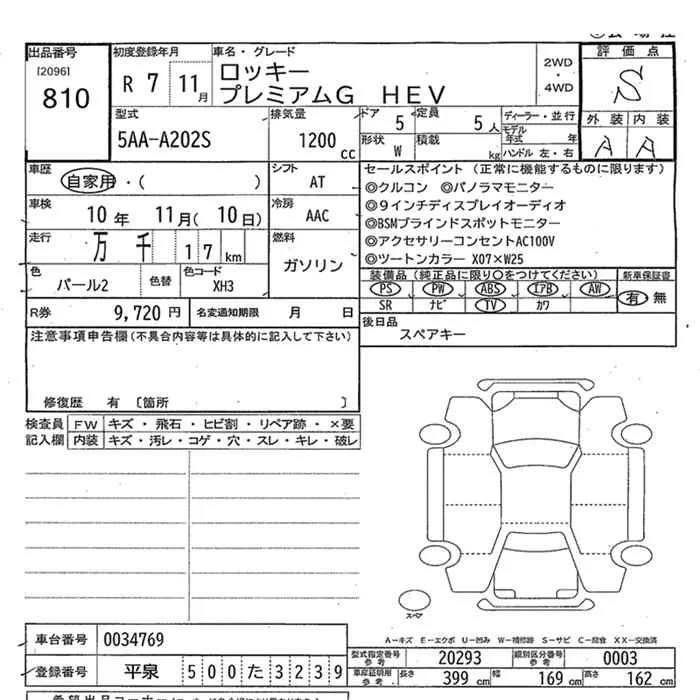 出品番号
[2096]
810
初度登録年月
R 7 11月
車名・グレード
ロッキー
プレミアムG HEV
2WD
・
4WD
評価点
S
外装 内装
A A
型式
5AA-A202S
排気量
1200 cc
ドア 5
定員 5人
形状 W
積載 kg
ディーラー・並行
モデル年式 年
ハンドル 左・右
車歴
自家用・( )
シフト
AT
車検
10年 11月(10日)
冷房
AAC
走行
万千 17 km
燃料
ガソリン
色
パール2
色替
色コード
XH3
セールスポイント (正常に機能するものに限ります)
◎クルコン ◎パノラマモニター
◎9インチディスプレイオーディオ
◎BSMブラインドスポットモニター
◎アクセサリーコンセントAC100V
◎ツートンカラー X07×W25
装備品 (純正品に限り〇をつけてください)
新車保証書
PS PW ABS エアB AW
SR ナビ TV カワ
有 無
R券 9,720円
名変通知期限 月 日
後日品
スペアキー
注意事項申告欄 (不具合内容等は具体的に記入して下さい)
修復歴 有 〔箇所 〕
検査員記入欄
FW キズ・飛石・ヒビ割・リペア跡・×要
内装 キズ・汚レ・コゲ・穴・スレ・キレ・破レ
スペア
A-キズ E-エクボ U-凹み W-補修跡 S-サビ C-腐食 XX-交換済
車台番号 0034769
登録番号 平泉 500た3239
型式指定番号 参考 20293
類別区分番号 参考 0003
車庫証明用 参考 長さ 399 cm 幅 169 cm 高さ 162 cm